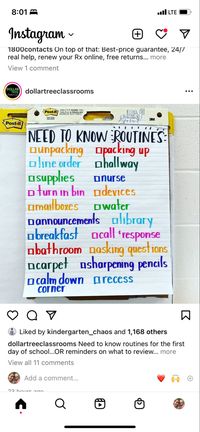 8:01
LTE
Instagram
1800contacts On top of that: Best-price guarantee, 24/7
real help, renew your Rx online, free returns... more
View 1 comment
dollartreeclassrooms
Post-it
Post-it
3M
NEED TO KNOW ROUTINES:
unpacking packing up
line order hallway
supplies nurse
turn in bin devices
mailboxes water
announcements library
breakfast call & response
bathroom asking questions
carpet sharpening pencils
calm down recess
corner
Liked by kindergarten_chaos and 1,168 others
dollartreeclassrooms Need to know routines for the first
day of school...OR reminders on what to review... more
View all 11 comments
Add a comment...
23 hours ago